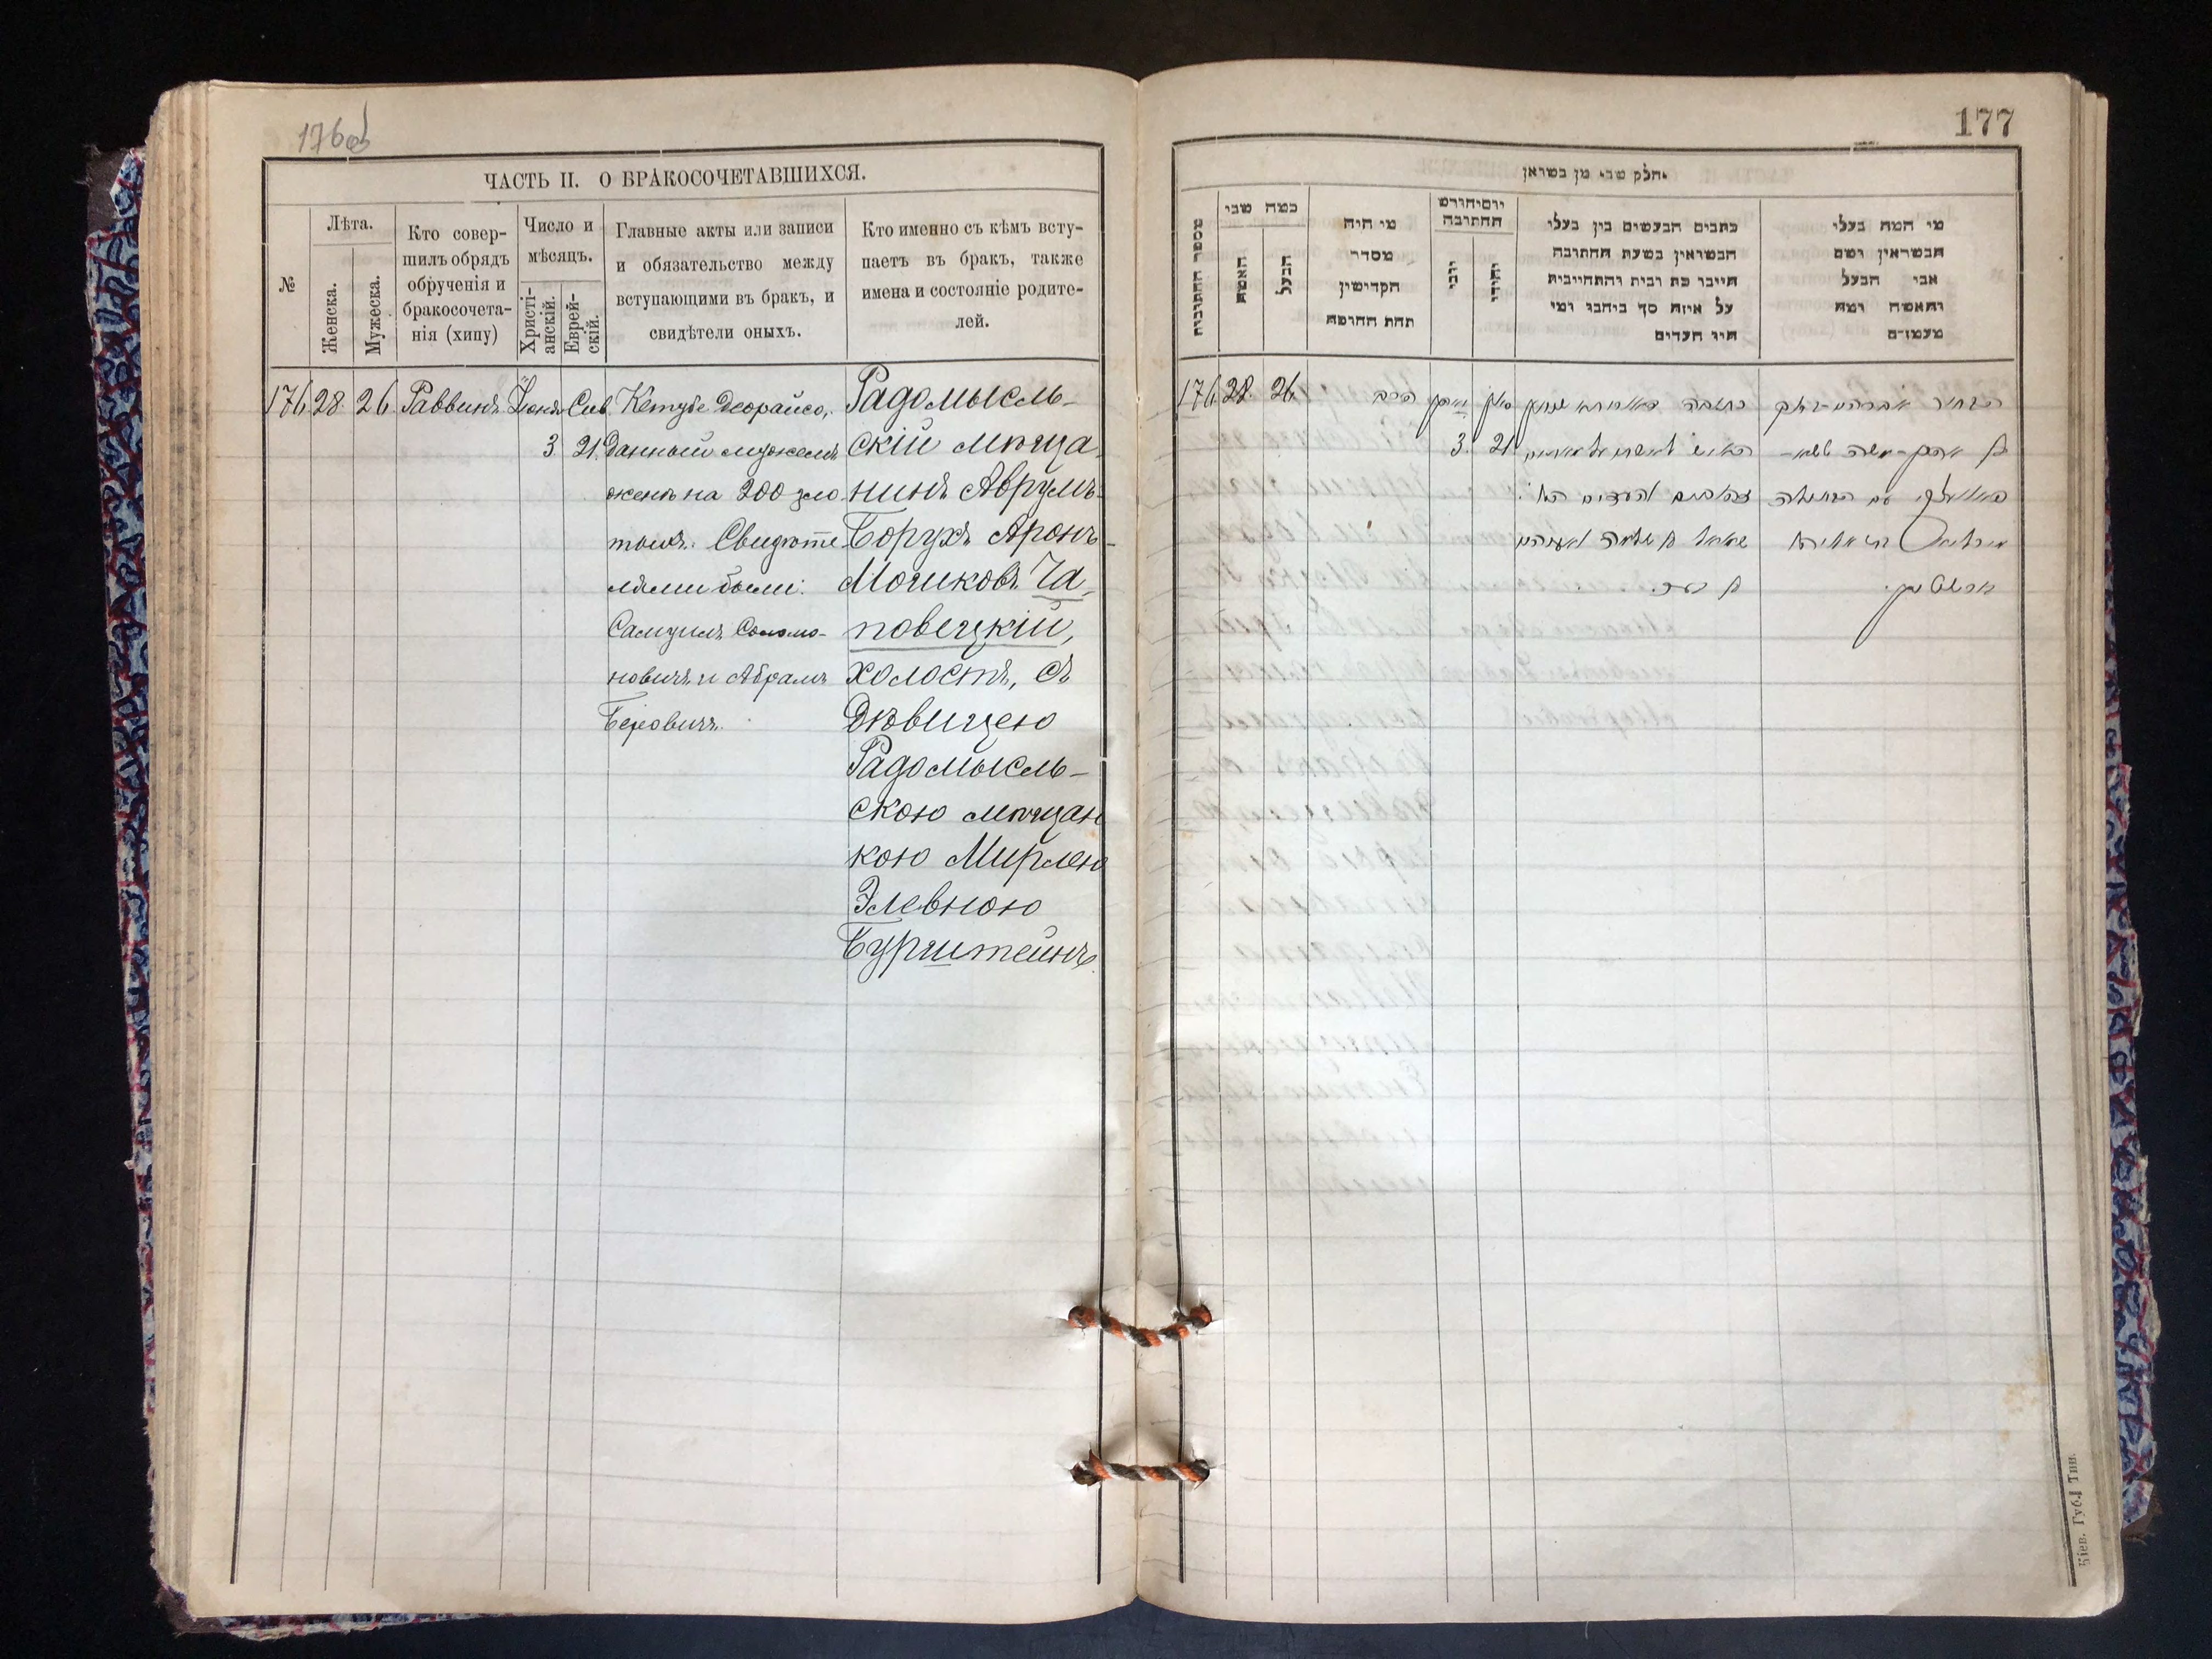 176об
ЧАСТЬ II. О БРАКОСОЧЕТАВШИХСЯ.
№
Лѣта.
Женска.
Мужеска.
Кто совер-
шилъ обрядъ
обрученія и
бракосочета-
нія (хипу)
Число и
мѣсяцъ.
Христі-
анскій.
Еврей-
скій.
Главные акты или записи
и обязательство между
вступающими въ бракъ, и
свидѣтели оныхъ.
Кто именно съ кѣмъ всту-
паетъ въ бракъ, также
имена и состояніе родите-
лей.
176
28.
26.
Раввинъ.
Іюня
3
Сив.
21.
Кетубе Деорайсо,
данный мужемъ
женѣ на 200 зло
тыхъ. Свидѣте
лями были:
Самуилъ Соломо-
новичъ и Абрамъ
Беровичъ.
Радомысль-
скій мѣща
нинъ Аврумъ-
Борухъ Аронъ-
Мошковъ Ча
повецкій,
холостъ, съ
Дѣвицею
Радомысль-
скою мѣщан
кою Мирлею
Элевною
Бурштейнъ.
177
מספר החתונות
כמה שני
האשה
הבעל
מי היה
מסדר
הקדישין
תחת החופה
יום וחודש
החתונה
יוני
יהודי
כתבים הנעשים בין בעלי
הנשואין בשעת החתונה
חיובי כח ובית והתחייבות
על איזה סך ביחנו ומי
היו העדים
מי המה בעלי
הנשואין ושם
אבי הבעל
והאשה ומה
מעמדם
176
28.
26.
הרב
יוני
3.
סיון
21
כתובה דאורייתא
שמואל בן שלמה ואברהם
הבחור אברהם-ברוך
בן אהרן-משה
עם הבתולה
בורשטיין.
Кіев. Губ. Тип.